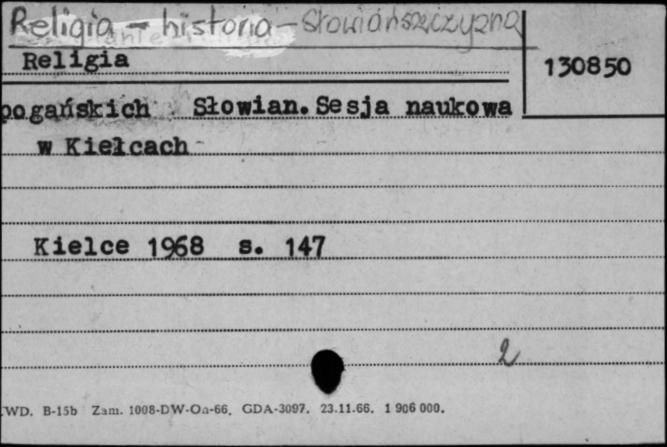 Religia - historia - Słowiańszczyzna
Religia
130850
pogańskich Słowian. Sesja naukowa
w Kiełcach
Kielce 1968 s. 147
2
WD. B-15b Zam. 1008-DW-Oa-66. GDA-3097. 23.11.66. 1 906 000.